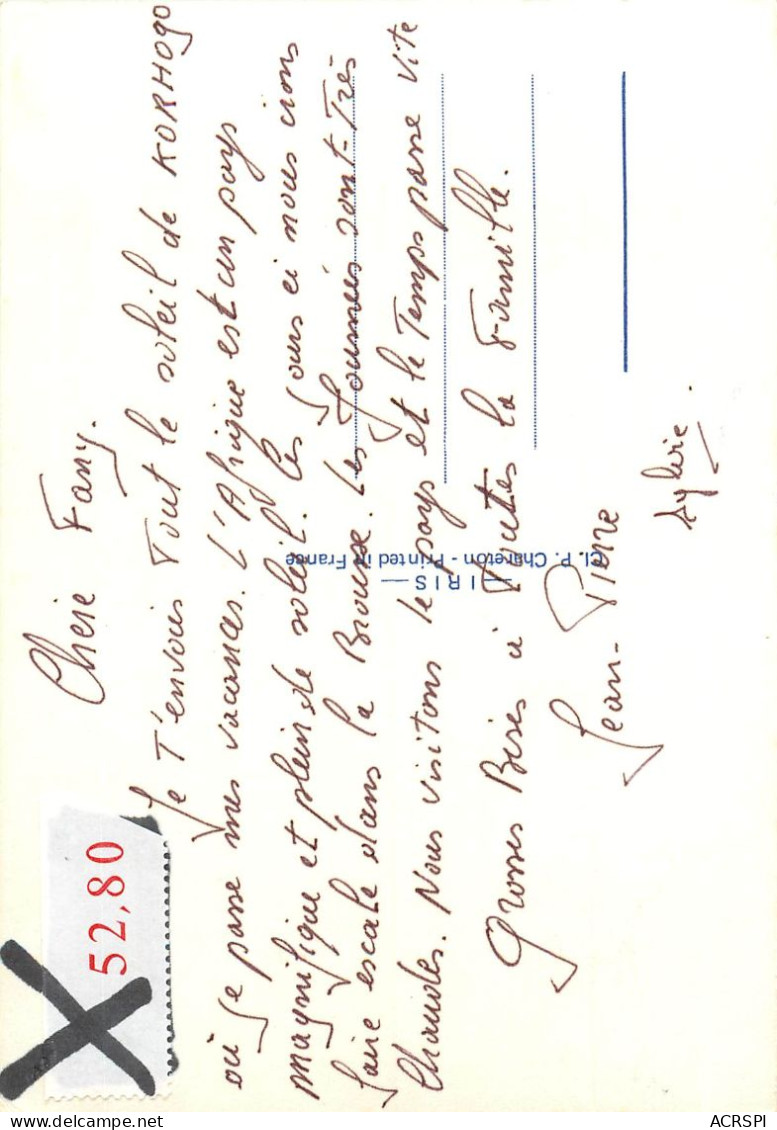 Cherie Fany.
Je T'envoies Tout le soleil de KORHOgo
où je passe mes vacances. L'Afrique est un pays
magnifique et plein de soleil. les jours ci nous irons
faire escale dans la Brousse. Les Journées sont-Très
Chaudes. Nous visitons le pays et le Temps passe vite
grosses Bises à Toutes la Famille.
Jean-Pierre
Sylvie.
IRIS
Cl. P. Chareton - Printed in France
52,80
ACRSPI